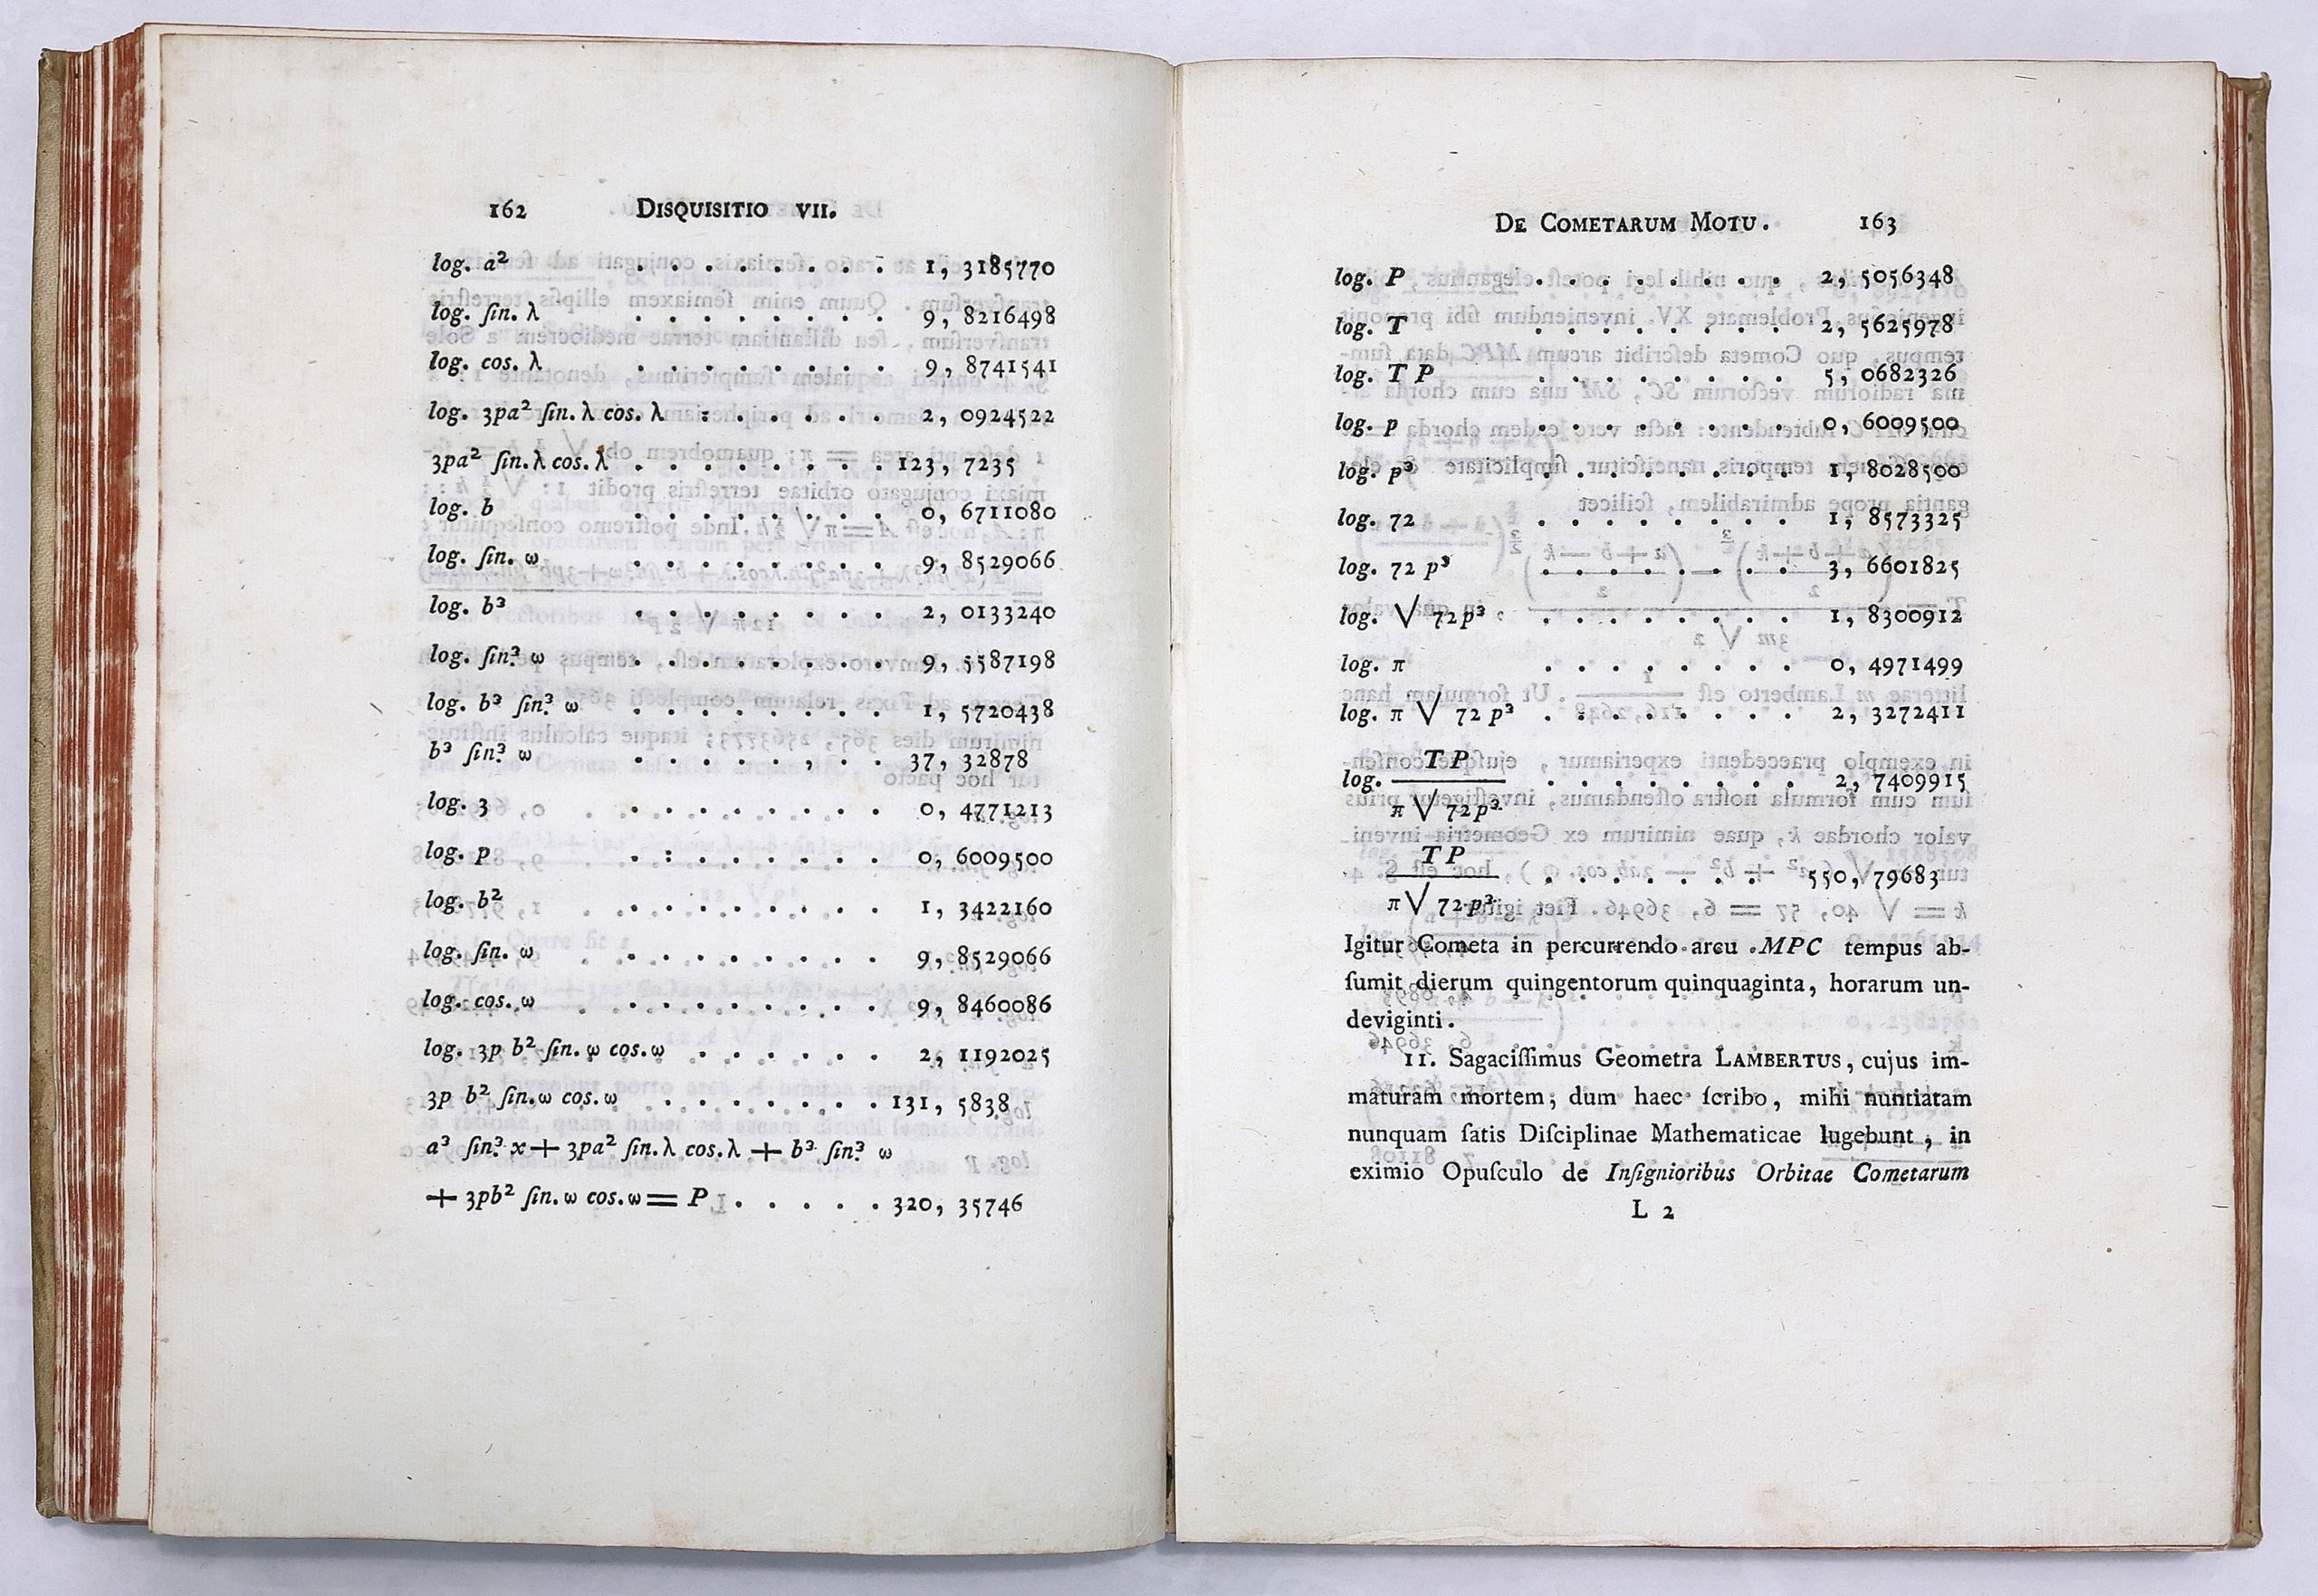 162 DISQUISITIO VII.
log. a² . . . . . . . . 1, 3185770
log. ſin. λ . . . . . . . . 9, 8216498
log. cos. λ . . . . . . . . 9, 8741541
log. 3pa² ſin. λ cos. λ : . . . . . 2, 0924522
3pa² ſin. λ cos. λ . . . . . . . . 123, 7235
log. b . . . . . . . . 0, 6711080
log. ſin. ω . . . . . . . . 9, 8529066
log. b³ . . . . . . . . 2, 0133240
log. ſin.³ ω . . . . . . . . 9, 5587198
log. b³ ſin.³ ω . . . . . . . . 1, 5720438
b³ ſin.³ ω . . . . . , . . 37, 32878
log. 3 . . . . . . . . . 0, 4771213
log. p . : . . . . . . 0, 6009500
log. b² . . . . . . . . . 1, 3422160
log. ſin. ω . . . . . . . . . 9, 8529066
log. cos. ω . . . . . . . . . 9, 8460086
log. 3p b² ſin. ω cos. ω . . . . . . 2, 1192025
3p b² ſin. ω cos. ω . . . . . . . . 131, 5838
a³ ſin.³ x + 3pa² ſin. λ cos. λ + b³ ſin.³ ω
+ 3pb² ſin. ω cos. ω = P . . . . . 320, 35746
DE COMETARUM MOTU. 163
log. P . . . . . . . . 2, 5056348
log. T . . . . . . . . 2, 5625978
log. T P . . . . . . . . 5, 0682326
log. p . . . . . . . . 0, 6009500
log. p³ . . . . . . . . 1, 8028500
log. 72 . . . . . . . . 1, 8573325
log. 72 p³ . . . . . . . . 3, 6601825
log. √ 72p³ . . . . . . . . 1, 8300912
log. π . . . . . . . . 0, 4971499
log. π √ 72 p³ . . . . . . . . 2, 3272411
T P
log. ——— . . . . . . . . 2, 7409915
π √ 72p³
T P
——— . . . . . . . 550, 79683
π √ 72 p³
Igitur Cometa in percurrendo arcu MPC tempus ab-
ſumit dierum quingentorum quinquaginta, horarum un-
deviginti.
11. Sagaciſſimus Geometra LAMBERTUS, cujus im-
maturam mortem, dum haec ſcribo, mihi nuntiatam
nunquam ſatis Diſciplinae Mathematicae lugebunt, in
eximio Opuſculo de Inſignioribus Orbitae Cometarum
L 2